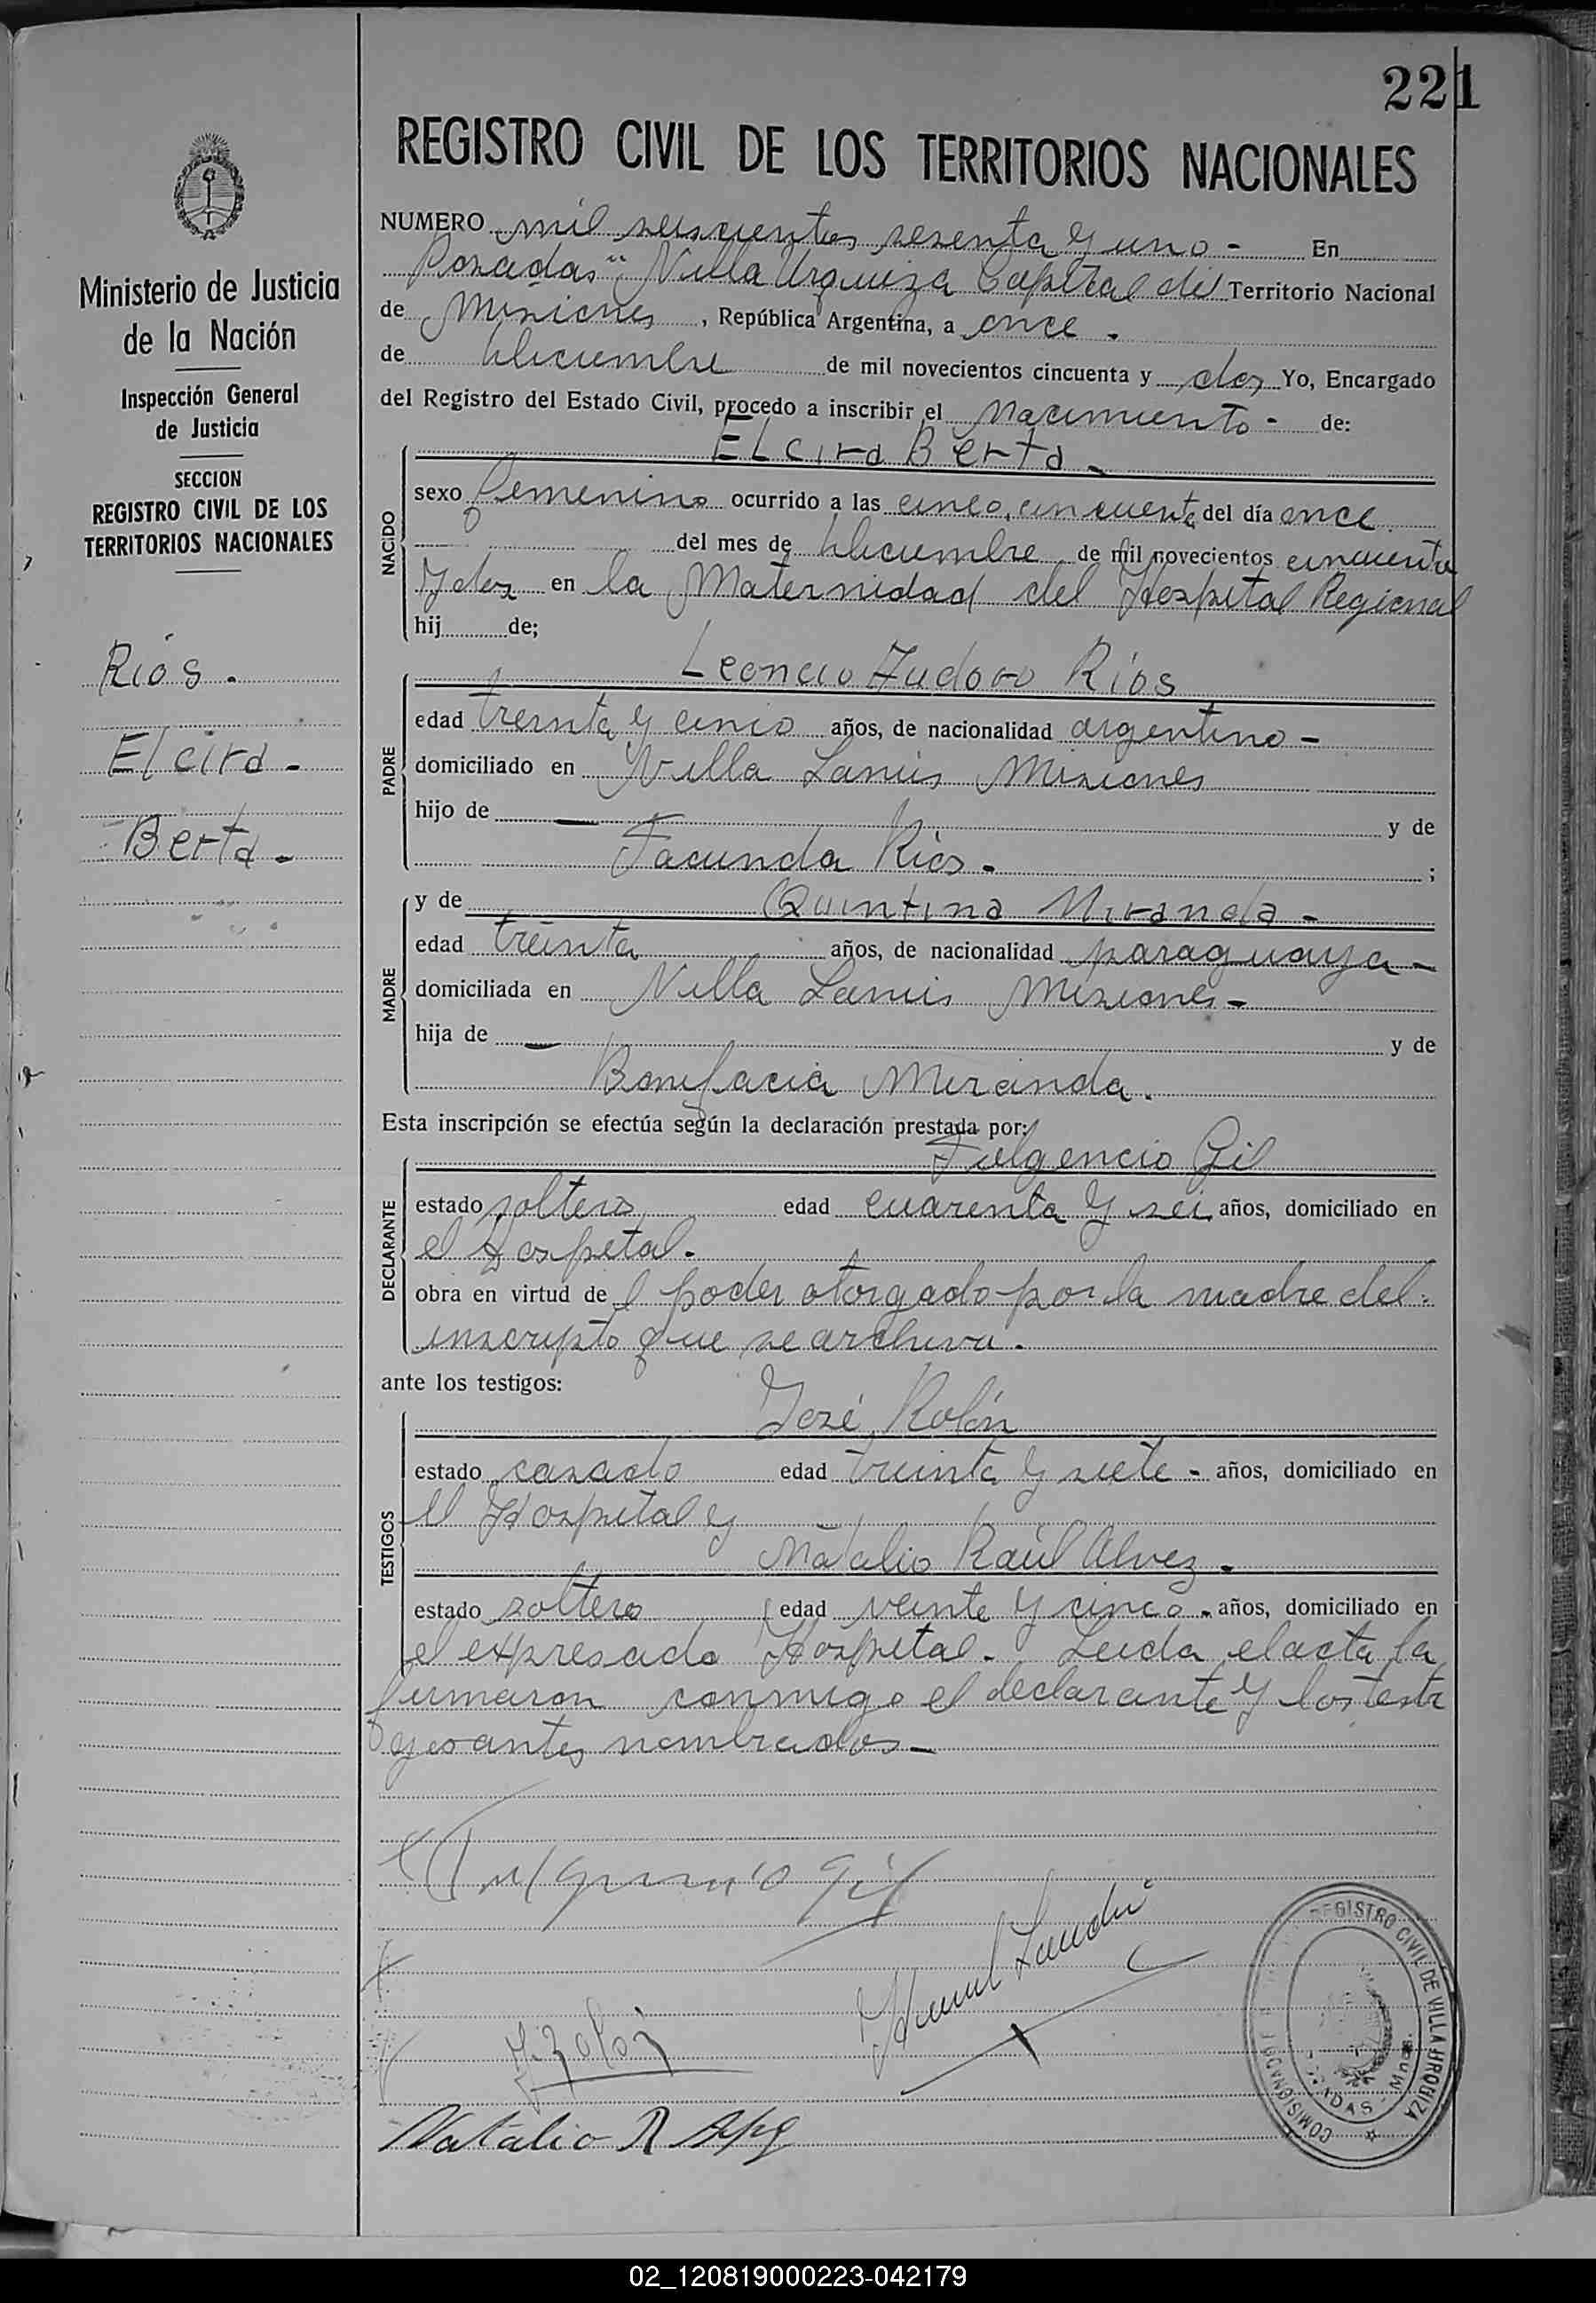 221
REGISTRO CIVIL DE LOS TERRITORIOS NACIONALES
NUMERO mil seiscientos sesenta y uno - En
Posadas "Villa Urquiza Capital del Territorio Nacional
de Misiones, República Argentina, a once.
de diciembre de mil novecientos cincuenta y dos Yo, Encargado
del Registro del Estado Civil, procedo a inscribir el nacimiento - de:
Elcira Berta -
NACIDO
sexo femenino ocurrido a las cinco, cincuenta del día once
del mes de diciembre de mil novecientos cincuenta
y dos en la Maternidad del Hospital Regional
hij de;
Leoncio Ríos
PADRE
edad treinta y cinco años, de nacionalidad argentino -
domiciliado en Villa Lanús Misiones
hijo de — y de
Facunda Ríos - ;
MADRE
y de Quintina Miranda -
edad treinta años, de nacionalidad paraguaya -
domiciliada en Villa Lanús Misiones -
hija de — y de
Bonifacia Miranda.
Esta inscripción se efectúa según la declaración prestada por:
Fulgencio Gil
DECLARANTE
estado soltero edad cuarenta y seis años, domiciliado en
el Hospital.
obra en virtud de l poder otorgado por la madre del
inscripto que se archiva.
ante los testigos:
José Rolón
TESTIGOS
estado casado edad treinta y siete - años, domiciliado en
el Hospital y
Natalio Raúl Alvez -
estado soltero edad veinte y cinco - años, domiciliado en
el expresado Hospital. Leida el acta la
firmaron conmigo el declarante y los testi
gos antes nombrados -
Fulgencio Gil
J. Rolon
Natalio R
REGISTRO CIVIL DE VILLA URQUIZA
Mnes.
Ministerio de Justicia
de la Nación
Inspección General
de Justicia
SECCION
REGISTRO CIVIL DE LOS
TERRITORIOS NACIONALES
Ríos.
Elcira -
Berta -
02_120819000223-042179